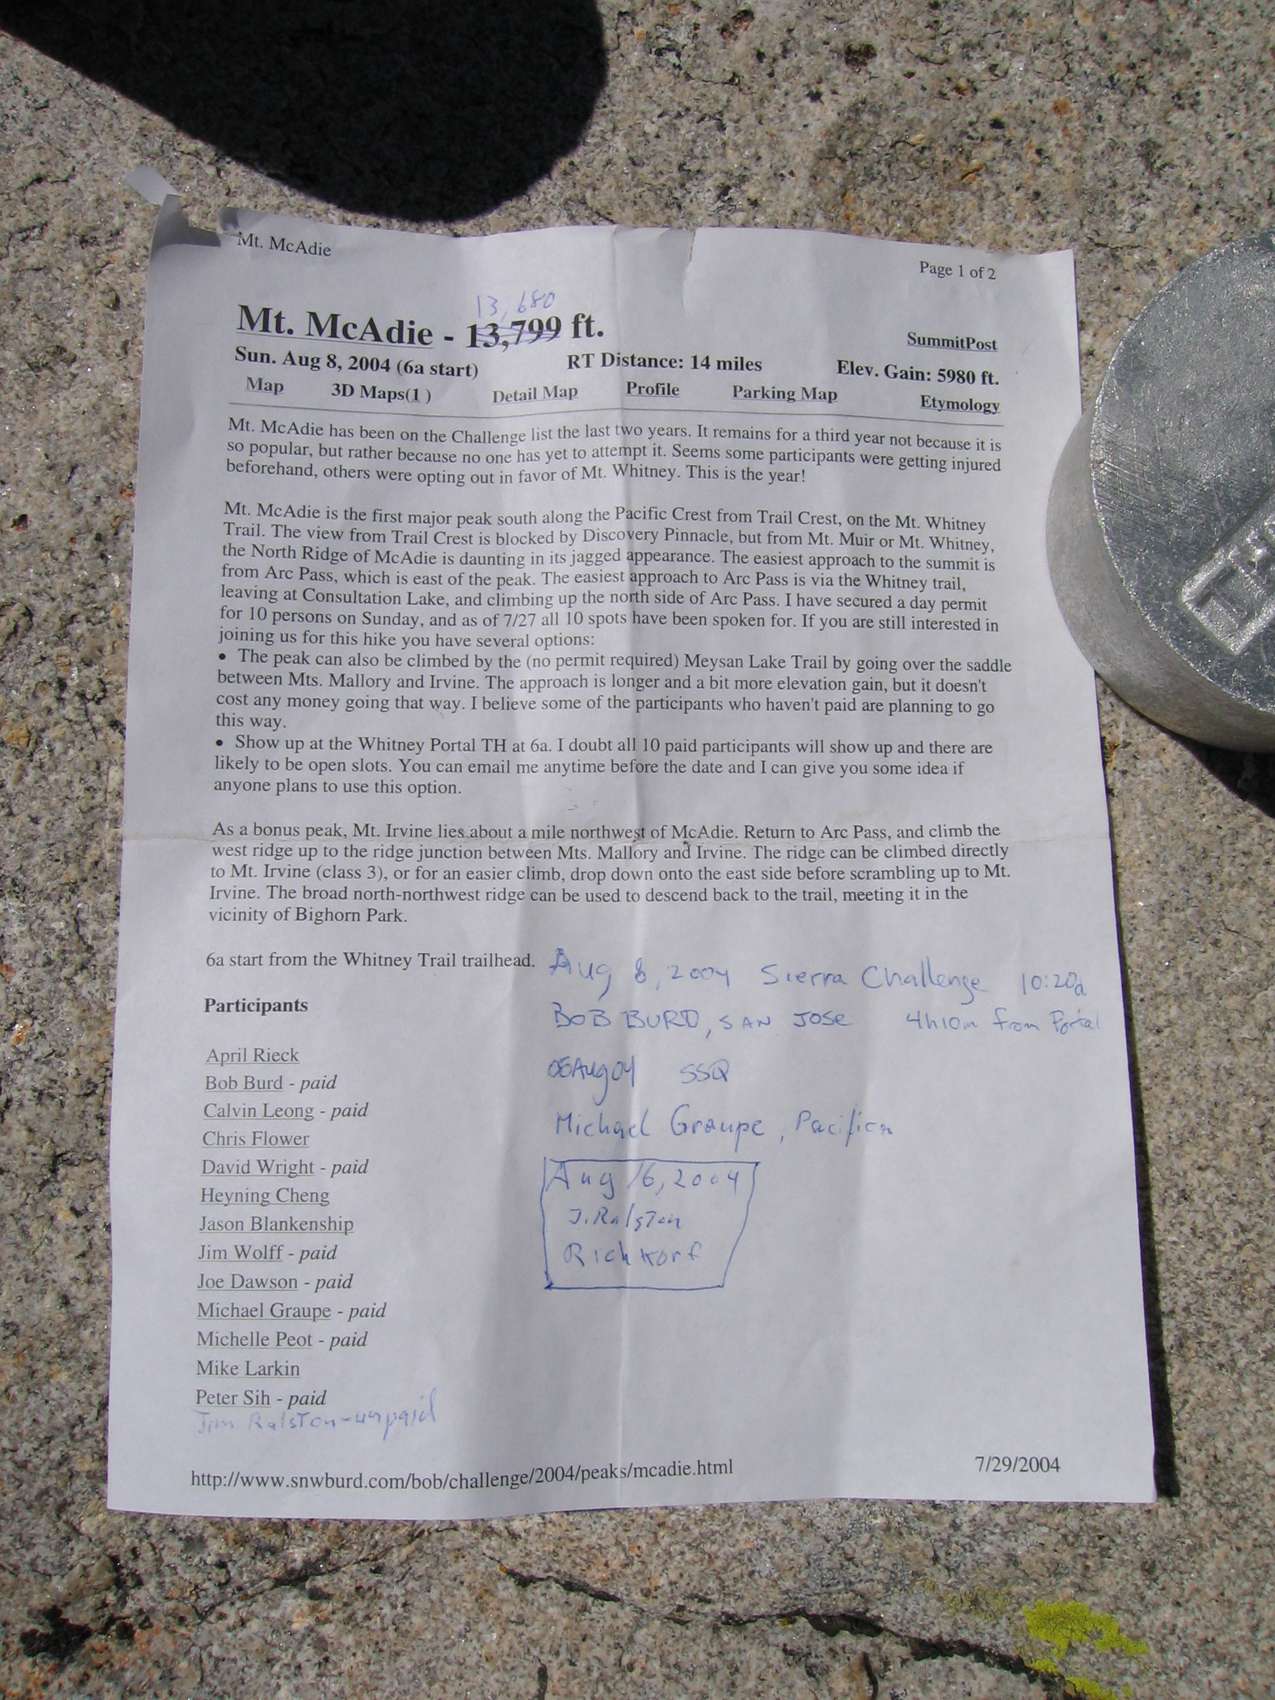 Mt. McAdie
Page 1 of 2
13,680
Mt. McAdie - 13,799 ft.
SummitPost
Sun. Aug 8, 2004 (6a start) RT Distance: 14 miles Elev. Gain: 5980 ft.
Map 3D Maps(1 ) Detail Map Profile Parking Map Etymology
Mt. McAdie has been on the Challenge list the last two years. It remains for a third year not because it is
so popular, but rather because no one has yet to attempt it. Seems some participants were getting injured
beforehand, others were opting out in favor of Mt. Whitney. This is the year!
Mt. McAdie is the first major peak south along the Pacific Crest from Trail Crest, on the Mt. Whitney
Trail. The view from Trail Crest is blocked by Discovery Pinnacle, but from Mt. Muir or Mt. Whitney,
the North Ridge of McAdie is daunting in its jagged appearance. The easiest approach to the summit is
from Arc Pass, which is east of the peak. The easiest approach to Arc Pass is via the Whitney trail,
leaving at Consultation Lake, and climbing up the north side of Arc Pass. I have secured a day permit
for 10 persons on Sunday, and as of 7/27 all 10 spots have been spoken for. If you are still interested in
joining us for this hike you have several options:
• The peak can also be climbed by the (no permit required) Meysan Lake Trail by going over the saddle
between Mts. Mallory and Irvine. The approach is longer and a bit more elevation gain, but it doesn't
cost any money going that way. I believe some of the participants who haven't paid are planning to go
this way.
• Show up at the Whitney Portal TH at 6a. I doubt all 10 paid participants will show up and there are
likely to be open slots. You can email me anytime before the date and I can give you some idea if
anyone plans to use this option.
As a bonus peak, Mt. Irvine lies about a mile northwest of McAdie. Return to Arc Pass, and climb the
west ridge up to the ridge junction between Mts. Mallory and Irvine. The ridge can be climbed directly
to Mt. Irvine (class 3), or for an easier climb, drop down onto the east side before scrambling up to Mt.
Irvine. The broad north-northwest ridge can be used to descend back to the trail, meeting it in the
vicinity of Bighorn Park.
6a start from the Whitney Trail trailhead.
Aug 8, 2004 Sierra Challenge 10:20a
BOB BURD, SAN JOSE 4h10m from Portal
08Aug04 SSQ
Michael Graupe, Pacifica
Aug 16, 2004
J. Ralston
Rich Korf
Participants
April Rieck
Bob Burd - paid
Calvin Leong - paid
Chris Flower
David Wright - paid
Heyning Cheng
Jason Blankenship
Jim Wolff - paid
Joe Dawson - paid
Michael Graupe - paid
Michelle Peot - paid
Mike Larkin
Peter Sih - paid
Jim Ralston - unpaid
http://www.snwburd.com/bob/challenge/2004/peaks/mcadie.html
7/29/2004